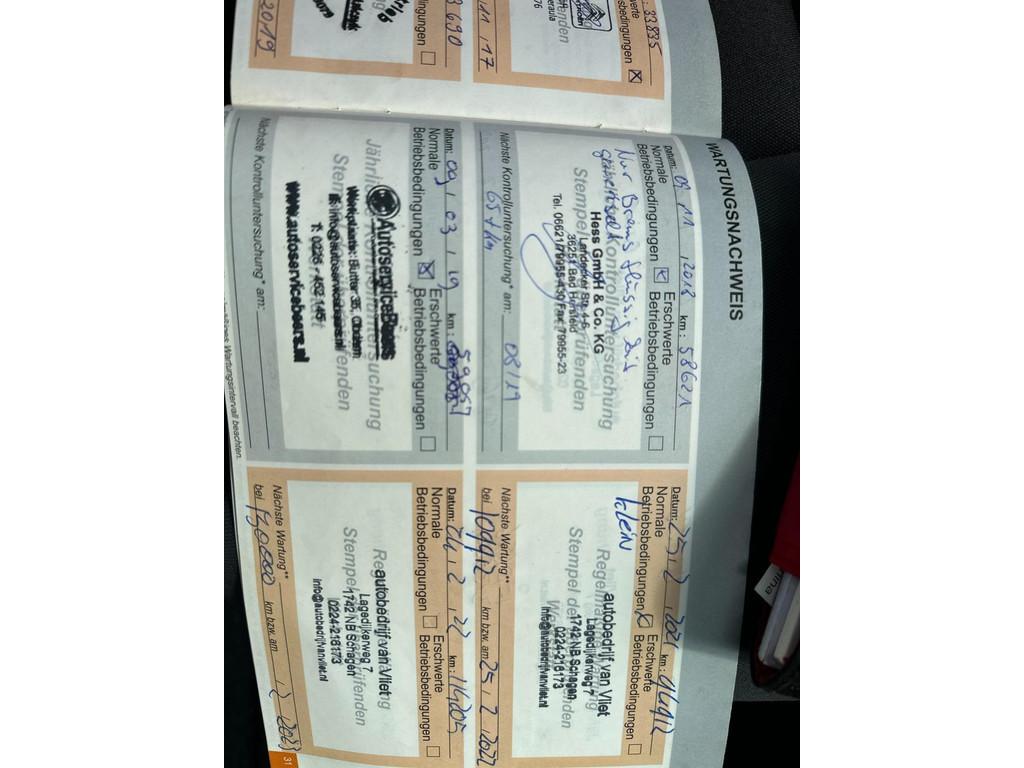 33835
Betriebsbedingungen ☒
11 , 17
3 690
Betriebsbedingungen ☐
2019
WARTUNGSNACHWEIS
Datum: 08 , 11 , 2018 km: 58621
Normale Betriebsbedingungen ☒ Erschwerte Betriebsbedingungen ☐
Nur Brems flüssigkeit
gewechselt
Jährliche Kontrolluntersuchung
Stempel des prüfenden
Hess GmbH & Co. KG
Landecker Str. 4-6
36251 Bad Hersfeld
Tel. 06621/79955-430 Fax: 79955-23
Nächste Kontrolluntersuchung* am: 08/19
65 tkm
Datum: 09 / 03 / 19 km: 59057
Normale Betriebsbedingungen ☒ Erschwerte Betriebsbedingungen ☐
Jährliche Kontrolluntersuchung
Stempel des prüfenden
AutoserviceBeers
T: 0226 - 452 145
www.autoservicebeers.nl
Nächste Kontrolluntersuchung* am:
Wartungsintervall beachten.
Datum: 25 , 2 , 2021 km:
Normale Betriebsbedingungen ☒ Erschwerte Betriebsbedingungen ☐
klein
Stempel des
autobedrijf van Vliet
Lagedijkerweg 7
1742 NB Schagen
0224-216173
info@autobedrijfvanvliet.nl
Nächste Wartung**
bei 109912 km bzw. am 25 , 2 , 2022
Datum: 24 , 2 , 22 km: 114205
Normale Betriebsbedingungen ☐ Erschwerte Betriebsbedingungen ☐
autobedrijf van Vliet
Lagedijkerweg 7
1742 NB Schagen
0224-216173
info@autobedrijfvanvliet.nl
Nächste Wartung**
bei 130000 km bzw. am 2 , 2023
31